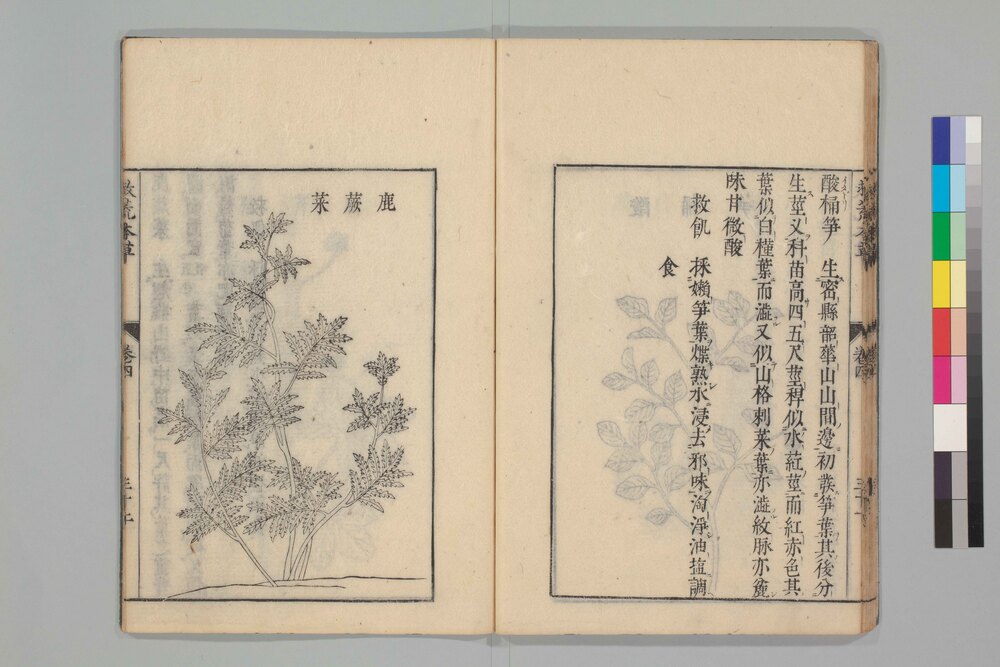 酸桶笋　生密縣韶華山山間邊初發笋葉其後分
生莖叉科苗高四五尺莖稈似水葒莖而紅赤色其
葉似白槿葉而澁又似山格刺菜葉亦澁紋脉亦麄
味甘微酸
救飢　採嫩笋葉煠熟水浸去邪味淘淨油塩調
食
鹿蕨菜
救荒本草
卷四